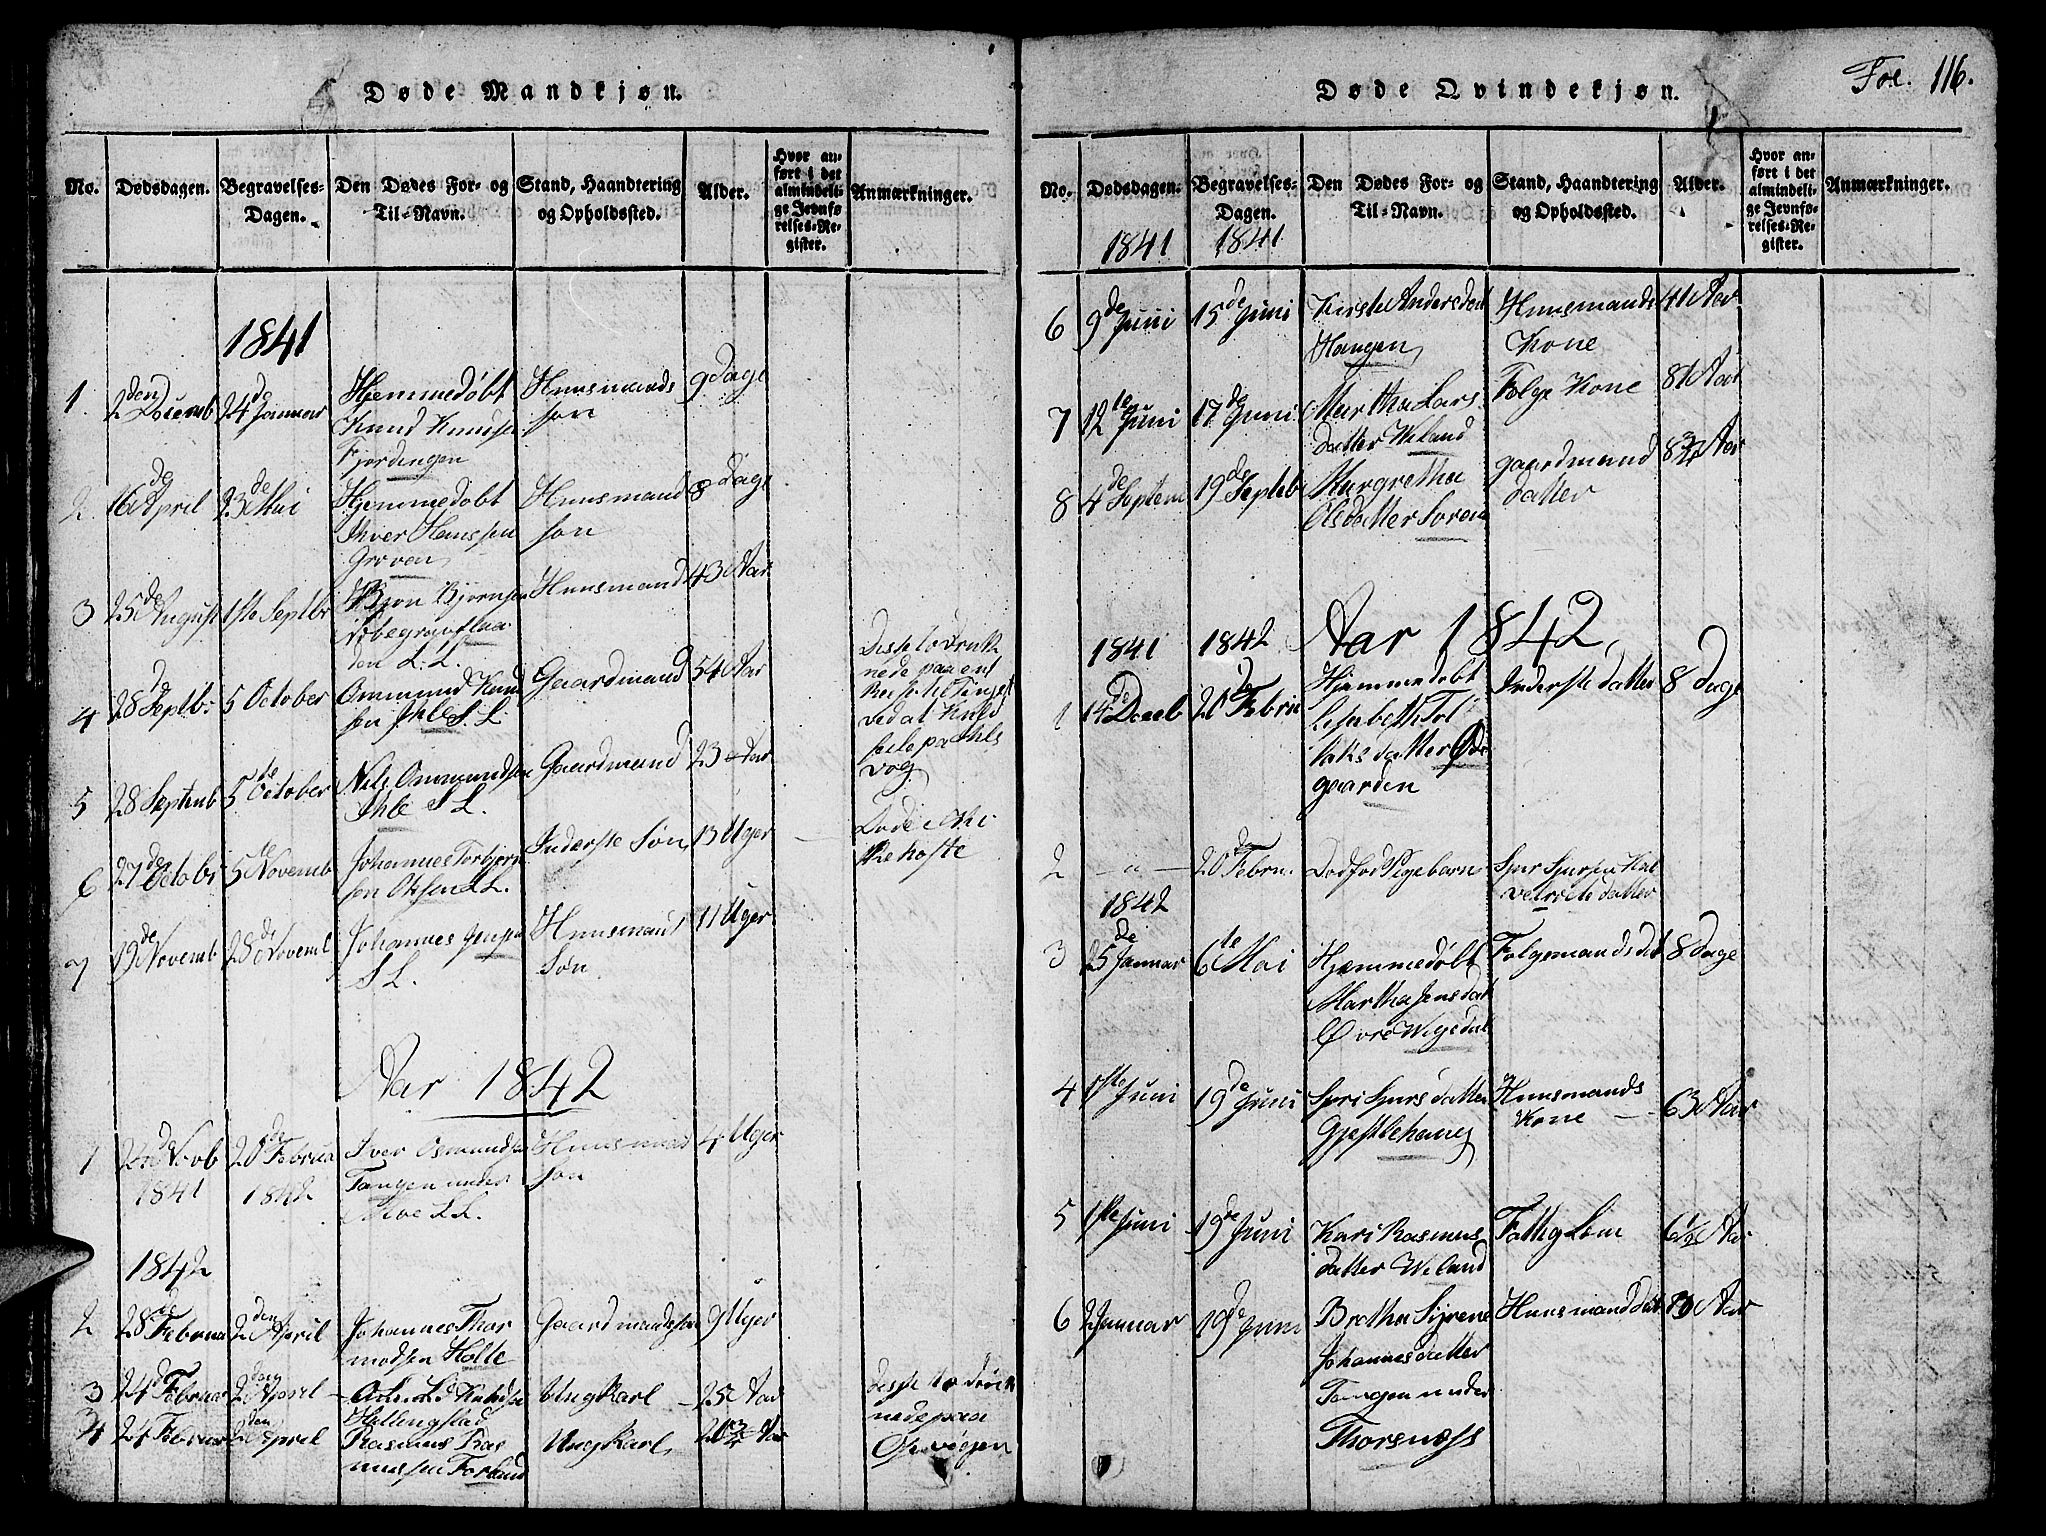 Døde Mandkjøn.
No.
Dødsdagen.
Begravelses-
Dagen.
Den Dødes For- og
Til-Navn.
Stand, Haandtering
og Opholdssted.
Alder.
Hvor an-
ført i det
almindeli-
ge Jevnfø-
relses-Re-
gister.
Anmærkninger.
1841
1.
2den Decemb
24de Januar
Hjemmedøbt
Knud Knudsen
Fjordengen
Huusmands
søn
9 Dage
2
16de April
23de Mai
Hjemmedøbt
Iver Hanssen
Groven
Huusmand
søn
8 Dage
3
25de August
1ste Septbr
Bjørnsen
den S.L.
Huusmand
43 Aar
4
28de Septbr
5 October
Ommund Knud
sen Ihle S.L.
Gaardmand
54 Aar
Disse to Druk
nede paa en
ved at
vog
5
28 Septemb
5de October
Nils Ommundsen
Ihle S L.
Gaardmand
23 Aar
6
27de Octobr
5te Novemb
Johannes Torbjørn
sen S.L.
Inderste Søn
13 Uger
Døde
7
19de Novemb
28de Novemb
Johannes
S L.
Huusmands
Søn
11 Uger
Aar 1842
1
24de Novb
1841
20de Februa
1842
Iver Osmundsen
Tangen under
S.L.
Huusmand
søn
4 Uger
1842
2
28de Februa
2den April
Johannes Thor
modsen Holte
Gaardmandsøn
9 Uger
3
24de Februar
2den April
Knudsen
Hellingstad
UngKarl
25 Aar
disse to Druk
nede paa
4
24 Februar
2den April
Rasmus Ras
mussen Forland
UngKarl
20 3/4 Aar
Døde Qvindekjøn.
Fol. 116.
No.
Dødsdagen.
1841
Begravelses-
Dagen.
1841
Den Dødes For- og
Til-Navn.
Stand, Haandtering
og Opholdssted.
Alder.
Hvor an-
ført i det
almindeli-
ge Jevnfø-
relses-Re-
gister.
Anmærkninger.
6
9de Juni
15de Juni
Kirste Andersdat
Haugen
Huusmands
Kone
41 Aar
7
12te Juni
17de Juni
Martha Lars
datter Weland
Følge Kone
81 Aar
8
4de Septem
19de Septebr
Margretha
Olsdatter
gaardmand
datter
8 3/4 Aar
Aar 1842
1841
1842
1
14de Deceb
20de Februa
Hjemmedøbt
Lisabeth Tol
laksdatter
gaarden
Inderste datter
8 Dage
2
- " -
20de Febru.
Dødfød Pigebarn
datter
1842
3
25de Januar
6te Mai
Hjemmedøbt
Martha Jensdat
Øvre Wigedal
Følgemands dat
8 dage
4
1ste Juni
19de Juni
Siri Sjursdatter
Gjestlehaug
Huusmands
Kone
63 Aar
5
1ste Juni
19de Juni
Kari Rasmus
datter Weland
Fattig Lem
61/2 Aar
6
2 Januar
19de Juni
Bretha Sirene
Johannesdatter
Tangen under
Thorsnæss
Huusmand dat
Aar